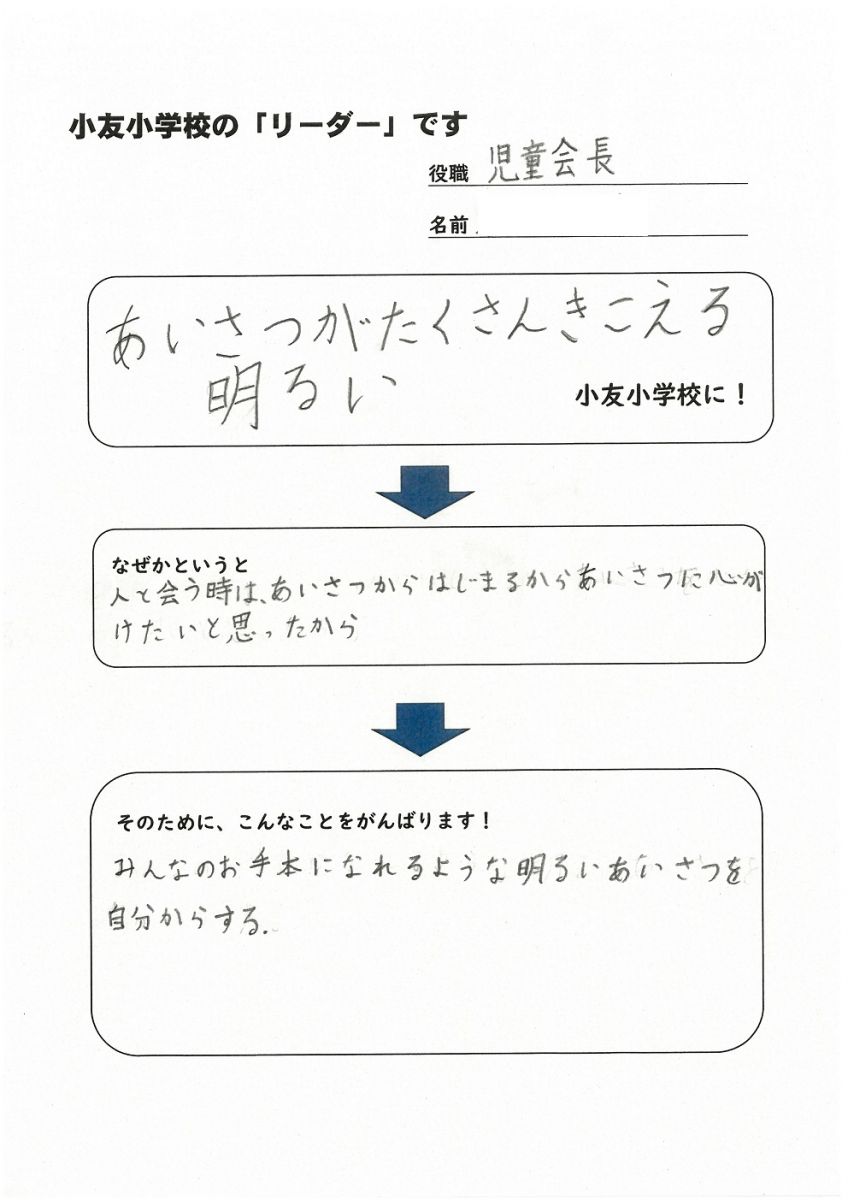 小友小学校の「リーダー」です
役職 児童会長
名前
あいさつがたくさんきこえる
明るい 小友小学校に！
なぜかというと
人と会う時は、あいさつからはじまるからあいさつに心が
けたいと思ったから
そのために、こんなことをがんばります！
みんなのお手本になれるような明るいあいさつを
自分からする.